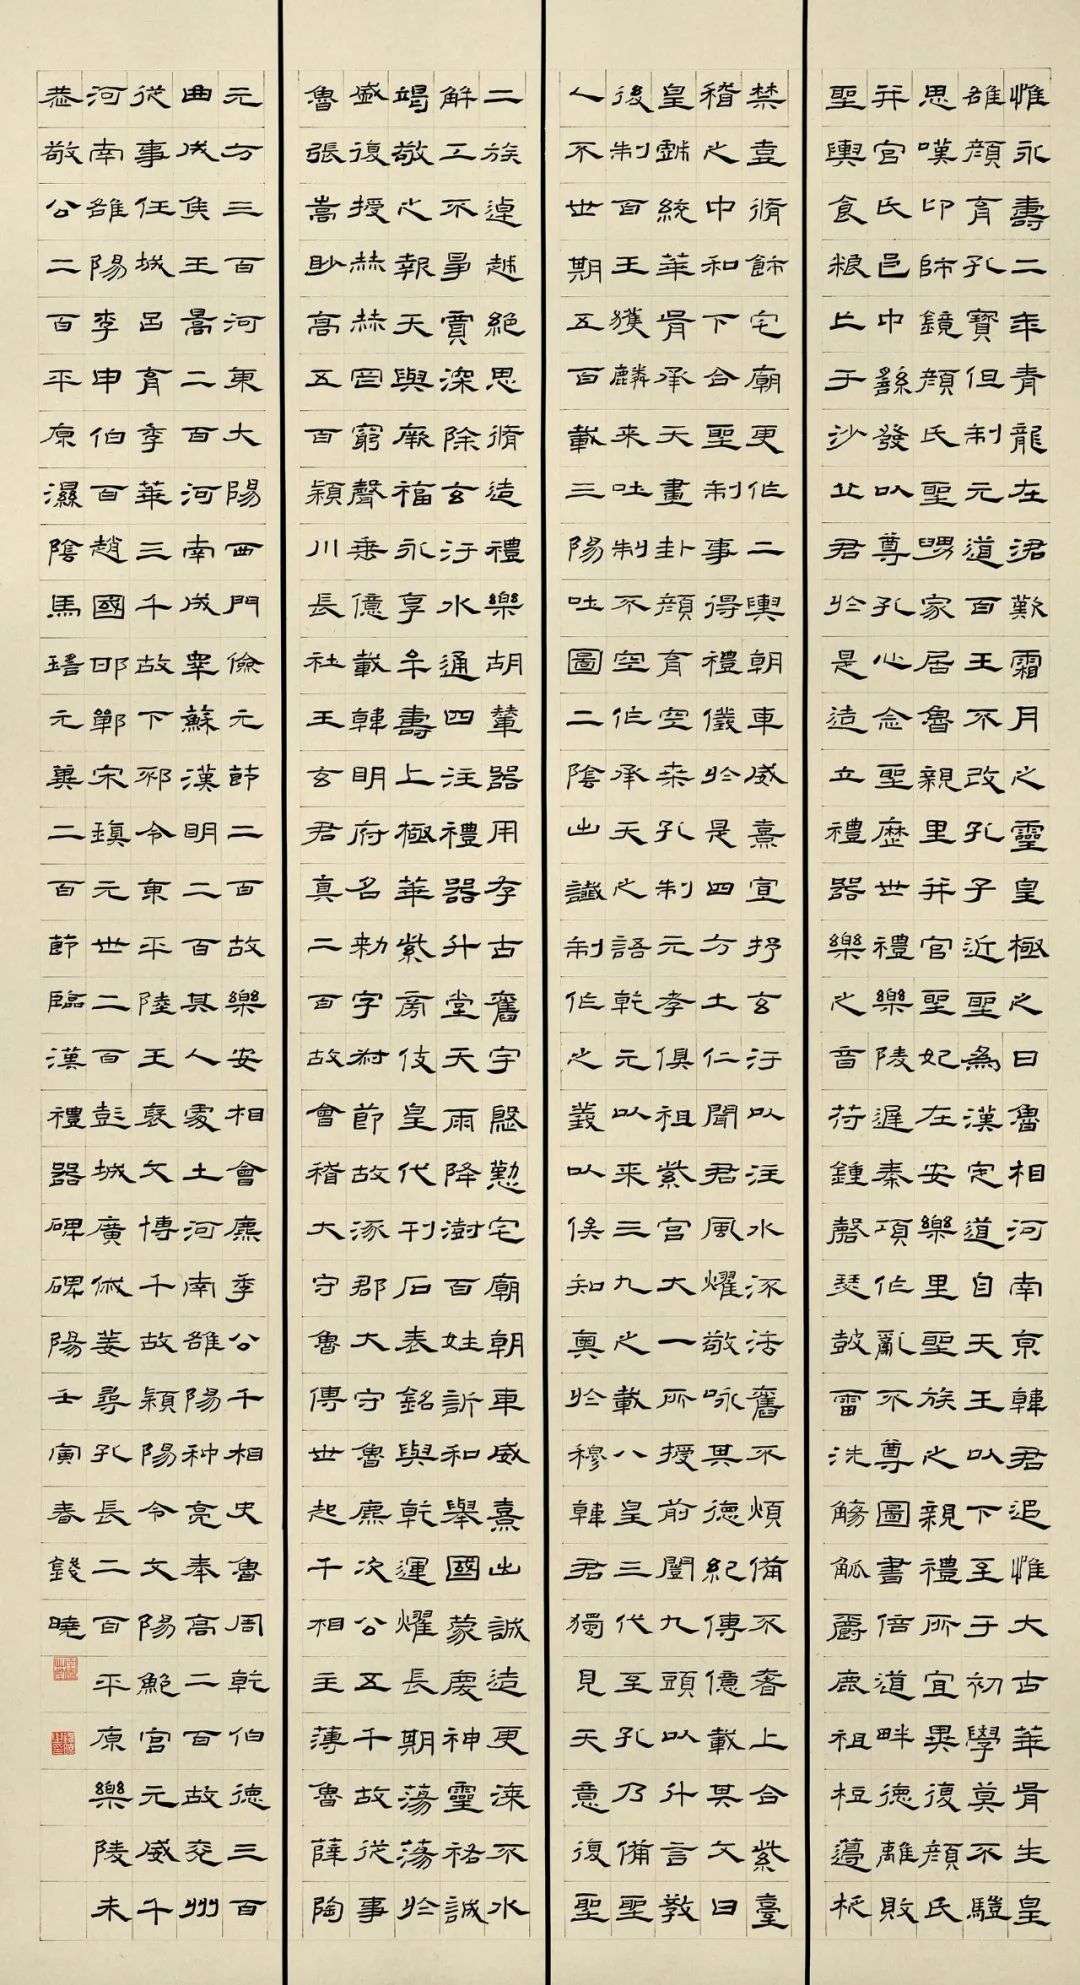 惟永壽二年青龍在涒歎霜月之靈皇極之日魯相河南京韓君追惟大古華胥生皇
雄顏育孔寶但制元道百王不改孔子近聖為漢定道自天王以下至于初學莫不驥
思嘆卬師鏡顏氏聖舅家居魯親里并官聖妃在安樂里聖族之親禮所宜異復顏氏
并官氏邑中繇發以尊孔心念聖歷世禮樂陵遲秦項作亂不尊圖書倍道畔德離敗
聖輿食糧亡于沙丘君於是造立禮器樂之音符鍾磬瑟鼓雷洗觴觚爵鹿柤梪籩柉
禁壺脩飾宅廟更作二輿朝車威熹宣抒玄汙以注水流法舊不煩備不奢上合紫臺
稽之中和下合聖制事得禮儀於是四方土仁聞君風燿敬咏其德紀傳億載其文曰
皇戲統華胥承天畫卦顏育空桑孔制元孝俱祖紫宮大一所授前闓九頭以升言教
後制百王獲麟來吐制不空作承天之語乾元以來三九之載八皇三代至孔乃備聖
人不世期五百載三陽吐圖二陰出讖制作之義以俟知奧於穆韓君獨見天意復聖
二族逴越絕思脩造禮樂胡輦器用存古舊宇慇懃宅廟朝車威熹出誠造更漆不水
解工不爭賈深除玄汙水通四注禮器升堂天雨降澍百姓訢和舉國蒙慶神靈祐誠
竭敬之報天與厥福永享牟壽上極華紫旁伎皇代刊石表銘與乾運燿長期蕩蕩於
盛復授赫赫罔窮聲垂億載韓明府名勑字叔節故涿郡大守魯麃次公五千故從事
魯張嵩眇高五百穎川長社王玄君真二百故會稽大守魯傅世起千相主薄魯薛陶
元方三百河東大陽西門儉元節二百故樂安相會麃季公千相史魯周乾伯德三百
曲成侯王暠二百河南成睪蘇漢明二百其人處土河南雒陽种亮奉高二百故兗州
從事任城呂育季華三千故下邳令東平陸王褒文博千故穎陽令文陽鮑宮元威千
河南雒陽李申伯百趙國邯鄲宋瑱元世二百彭城廣俅姜尋孔長二百平原樂陵朱
恭敬公二百平原濕陰馬瑤元冀二百節臨漢禮器碑碑陽壬寅春錢曉